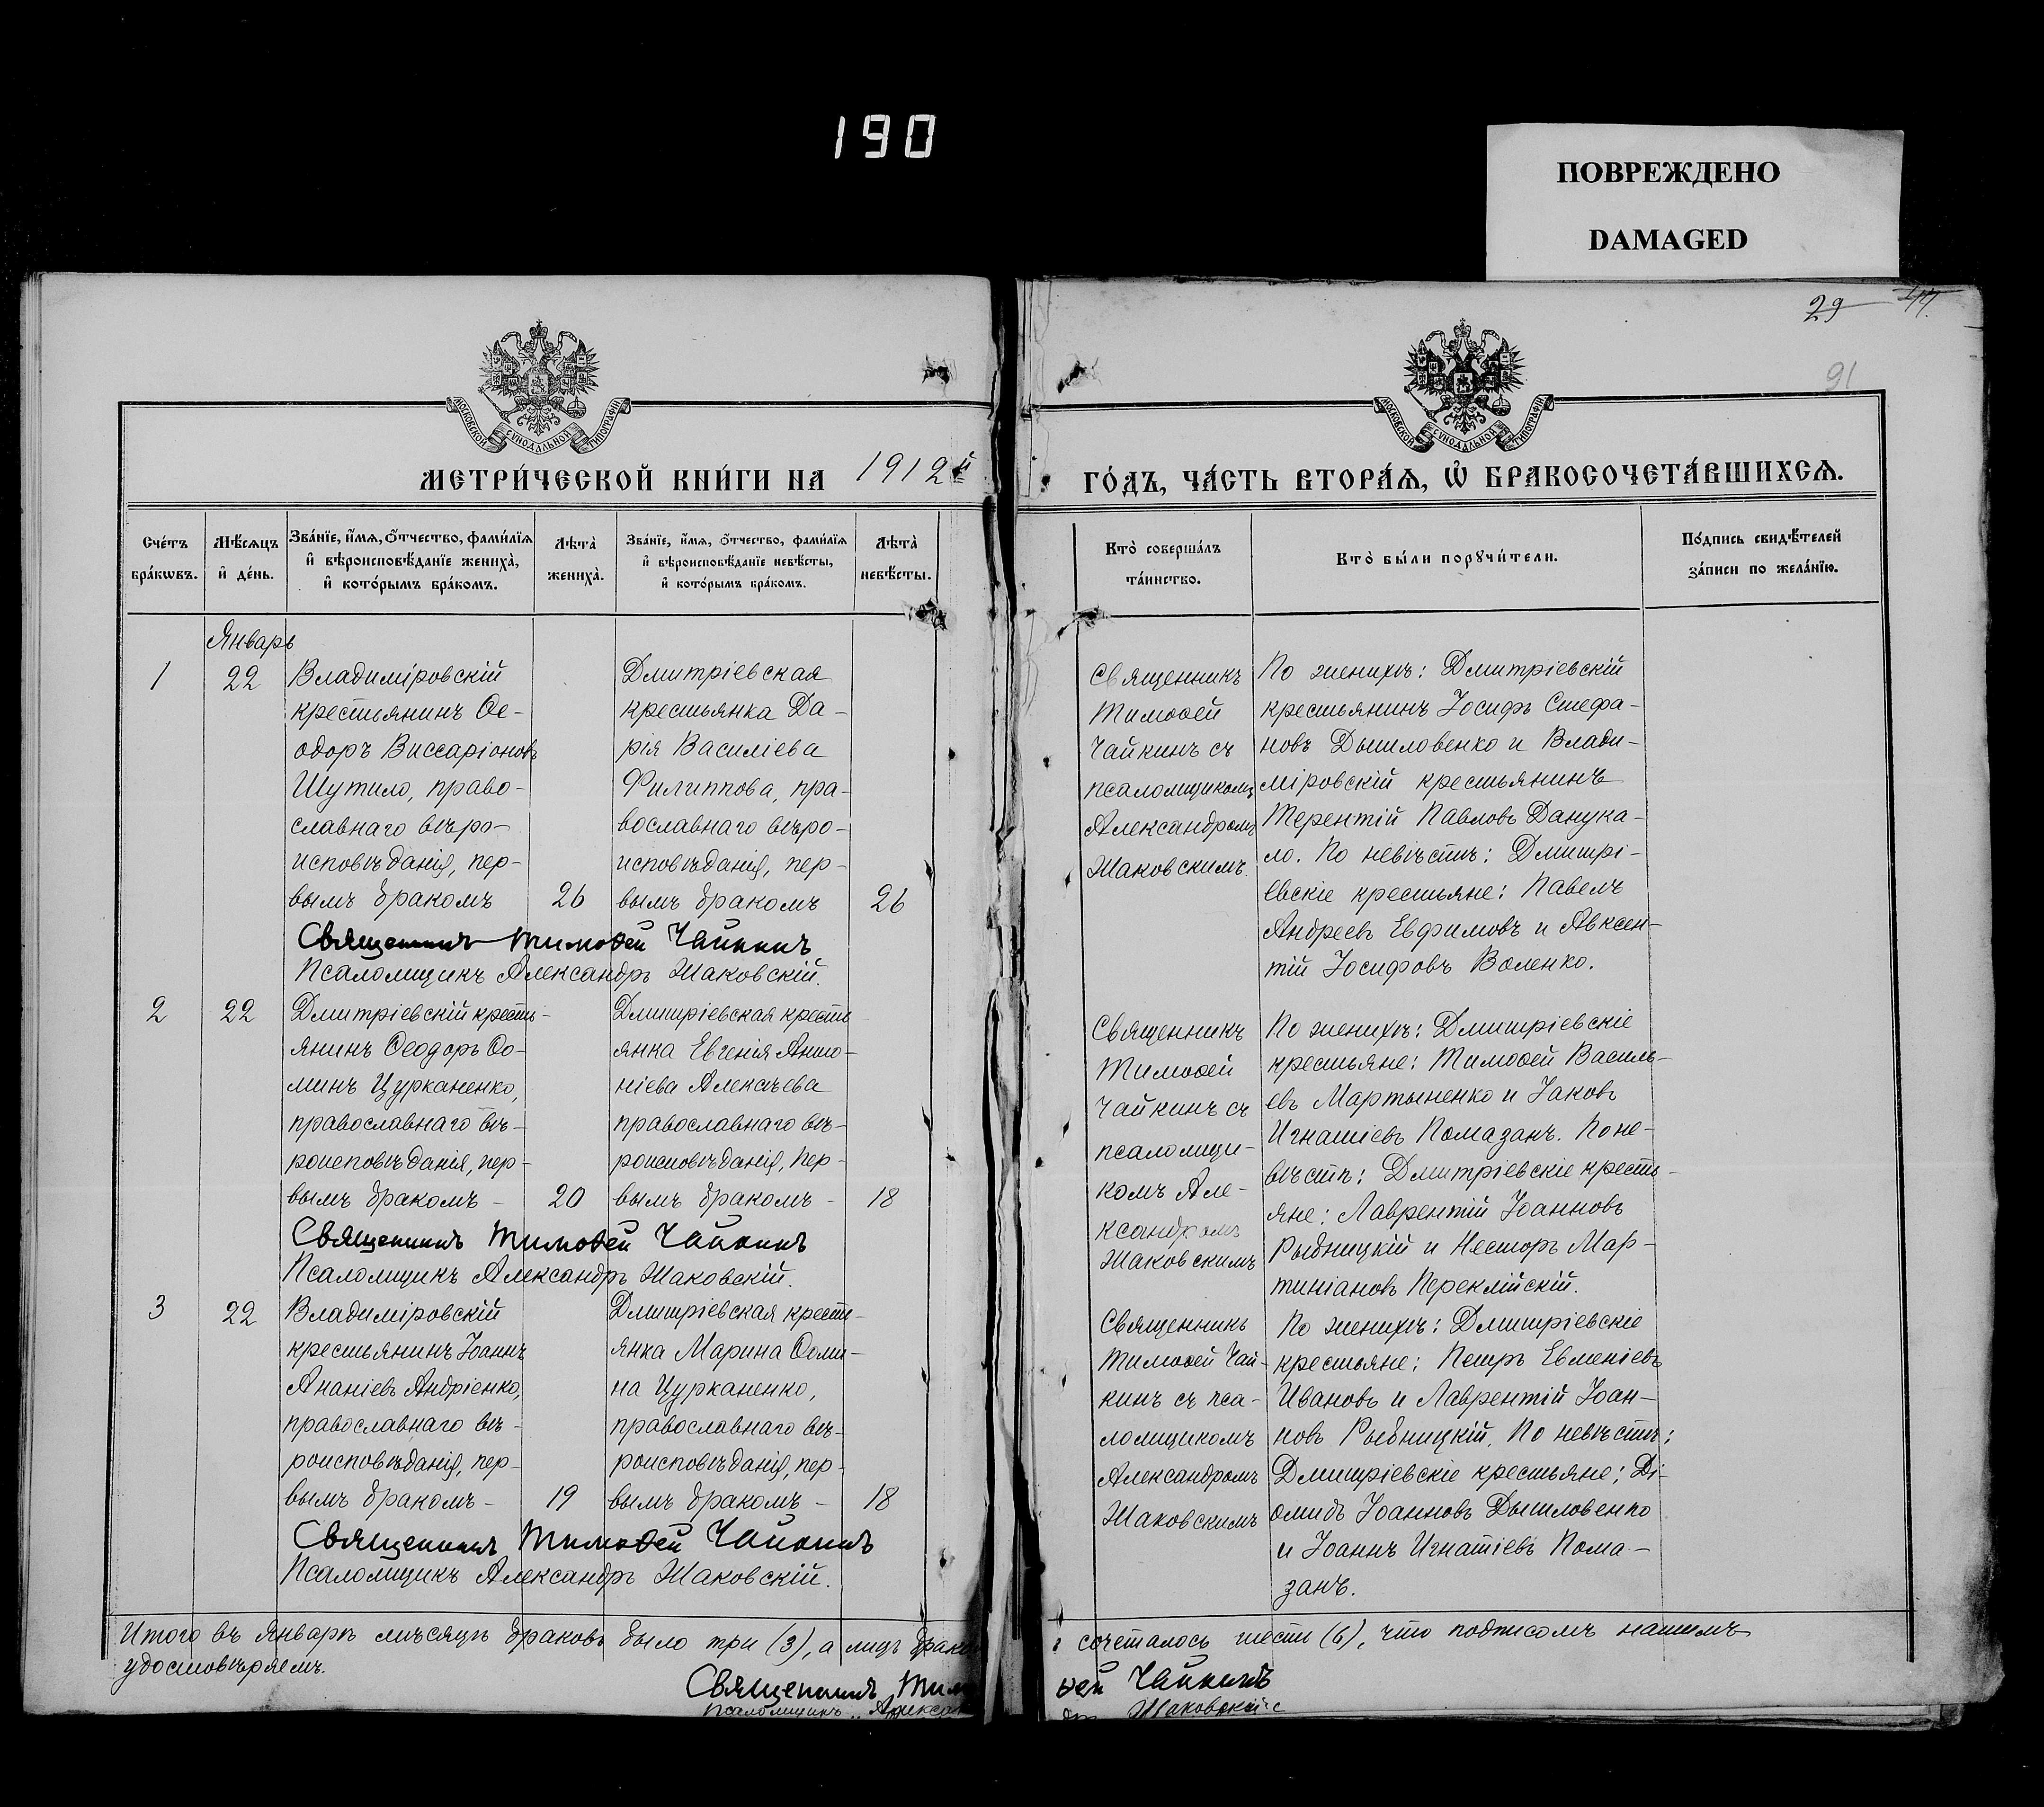 190
ПОВРЕЖДЕНО
DAMAGED
29
91
МОСКОВСКОЙ СѴНОДАЛЬНОЙ ТИПОГРАФІИ
МОСКОВСКОЙ СѴНОДАЛЬНОЙ ТИПОГРАФІИ
МЕТРИ́ЧЕСКОЙ КНИ́ГИ НА 1912й
ГО́ДЪ, ЧА́СТЬ ВТОРА́Ѧ, Ѡ҆ БРАКОСОЧЕТА́ВШИХСѦ.
Сче́тъ бра́кѡвъ.
Мѣ́сѧцъ и҆ де́нь.
Зва́нїе, и҆́мѧ, ѻ҆́тчество, фами́лїѧ
и҆ вѣроисповѣ́данїе жениха̀,
и҆ кото́рымъ бра́комъ.
Лѣта̀ жениха̀.
Зва́нїе, и҆́мѧ, ѻ҆́тчество, фами́лїѧ
и҆ вѣроисповѣ́данїе невѣ́сты,
и҆ кото́рымъ бра́комъ.
Лѣта̀ невѣ́сты.
Кто̀ соверша́лъ
та́инство.
Кто̀ бы́ли порꙋчи́тели.
По́дпись свидѣ́телей
за́писи по жела́нїю.
Январь
1
22
Владиміровскій
крестьянинъ Ѳе-
одоръ Виссаріоновъ
Шутило, право-
славнаго вѣро-
исповѣданія, пер-
вымъ бракомъ
26
Дмитріевская
крестьянка Да-
рія Василіева
Филиппова, пра-
вославнаго вѣро-
исповѣданія, пер-
вымъ бракомъ
26
Священникъ
Тимоѳей
Чайкинъ съ
псаломщикомъ
Александромъ
Жаковскимъ.
По женихѣ: Дмитріевскій
крестьянинъ Іосифъ Стефа-
новъ Дышловенко и Влади-
міровскій крестьянинъ
Терентій Павловъ Данука-
ло. По невѣстѣ: Дмитрі-
евскіе крестьяне: Павелъ
Андреевъ Евфимовъ и Авксен-
тій Іосифовъ Воленко.
Священникъ Тимоѳей Чайкинъ
Псаломщикъ Александръ Жаковскій.
2
22
Дмитріевскій кресть-
янинъ Ѳеодоръ Ѳо-
минъ Цурканенко,
православнаго вѣ-
роисповѣданія, пер-
вымъ бракомъ -
20
Дмитріевская кресть
янка Евгенія Анто-
ніева Алексѣева
православнаго вѣ-
роисповѣданія, пер-
вымъ бракомъ -
18
Священникъ
Тимоѳей
Чайкинъ съ
псаломщи-
комъ Але-
ксандромъ
Жаковскимъ
По женихѣ: Дмитріевскіе
крестьяне: Тимоѳей Василь-
евъ Мартыненко и Іаковъ
Игнатіевъ Помазанъ. По не-
вѣстѣ: Дмитріевскіе кресть-
яне: Лаврентій Іоанновъ
Рыбницкій и Несторъ Мар-
тиніановъ Переклійскій.
Священникъ Тимоѳей Чайкинъ
Псаломщикъ Александръ Жаковскій.
3
22
Владиміровскій
крестьянинъ Іоаннъ
Ананіевъ Андріенко,
православнаго вѣ-
роисповѣданія, пер-
вымъ бракомъ -
19
Дмитріевская кресть-
янка Марина Ѳоми-
на Цурканенко,
православнаго вѣ-
роисповѣданія, пер-
вымъ бракомъ -
18
Священникъ
Тимоѳей Чай-
кинъ съ пса-
ломщикомъ
Александромъ
Жаковскимъ
По женихѣ: Дмитріевскіе
крестьяне: Петръ Евменіевъ
Ивановъ и Лаврентій Іоан-
новъ Рыбницкій. По невѣстѣ:
Дмитріевскіе крестьяне: Ді-
омидъ Іоанновъ Дышловенко
и Іоаннъ Игнатіевъ Пома-
занъ.
Священникъ Тимоѳей Чайкинъ
Псаломщикъ Александръ Жаковскій.
Итого въ январѣ мѣсяцѣ браковъ было три (3), а лицъ брако сочеталось шесть (6), что подписомъ нашимъ
удостовѣряемъ.
Священникъ Тимоѳей Чайкинъ
Псаломщикъ Александръ Жаковскій